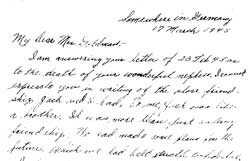 Somewhere in Germany
17 March 1945
My dear Mrs.
I am answering your letter of 23 Feb 45 as
to the death of your wonderful nephew. I cannot
express to you in writing of the close friend-
ship Jack and I had. To me, Jack was like
a brother. It was more than just
friendship. We had made some plans for the
future which we had both